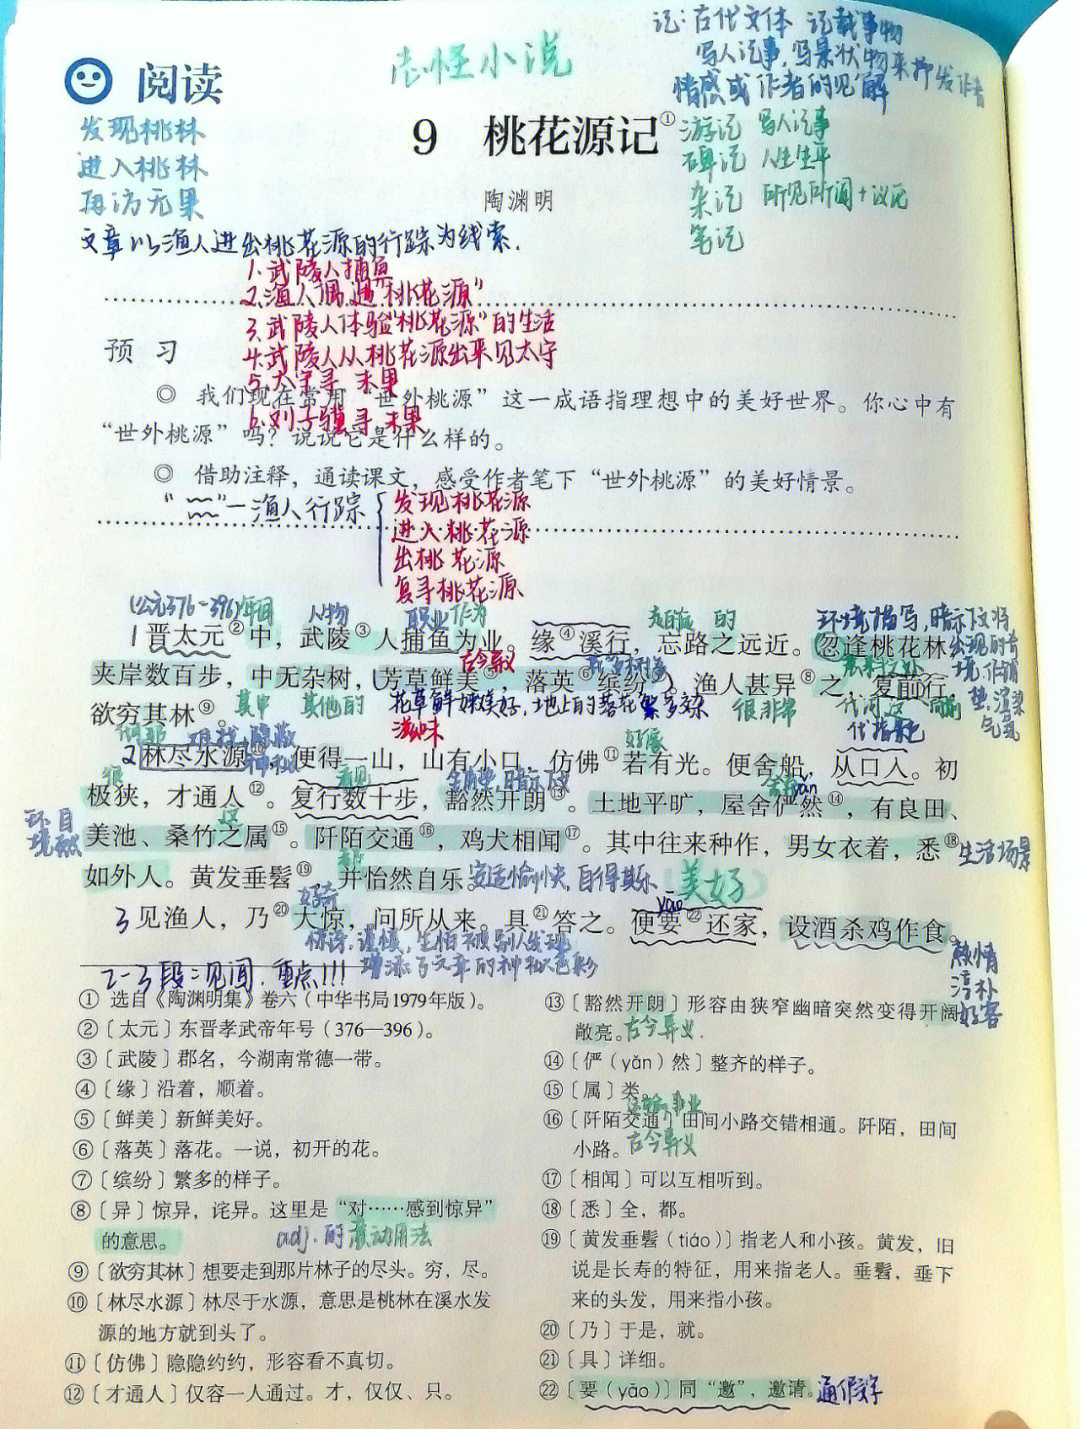 记：古代文体 记载事物
写人记事，写景状物来抒发作者
情感或作者的见解
志怪小说
阅读
9 桃花源记①
陶渊明
发现桃林
进入桃林
再访无果
游记 写人记事
碑记 人生生平
杂记 所见所闻+议论
笔记
文章以渔人进出桃花源的行踪为线索.
1.武陵人捕鱼
2.渔人偶遇"桃花源"
3.武陵人体验"桃花源"的生活
4.武陵人从桃花源出来见太守
5.太守寻 未果
6.刘子骥寻 未果
预 习
◎ 我们现在常用“世外桃源”这一成语指理想中的美好世界。你心中有
“世外桃源”吗？说说它是什么样的。
◎ 借助注释，通读课文，感受作者笔下“世外桃源”的美好情景。
渔人行踪
发现桃花源
进入桃花源
出桃花源
复寻桃花源
(公元376-396)年间 人物 职业 作为 的 环境描写，暗示下文将
1晋太元②中，武陵③人捕鱼为业。缘④溪行，忘路之远近。忽逢桃花林，
古今异义
夹岸数百步，中无杂树，芳草鲜美⑤，落英⑥缤纷⑦，渔人甚异⑧之，复前行，
欲穷其林⑨。
其中 其他的 花草鲜嫩美好，地上的落花繁多 很 非常 代词
滋味
2林尽水源⑩，便得一山，山有小口，仿佛⑪若有光。便舍船，从口入。初
好像
极狭，才通人⑫。复行数十步，豁然开朗⑬。土地平旷，屋舍俨然⑭，有良田、
美池、桑竹之属⑮。阡陌交通⑯，鸡犬相闻⑰。其中往来种作，男女衣着，悉⑱
生活场景
如外人。黄发垂髫⑲，并怡然自乐。
安适愉快，自得其乐 美好
3见渔人，乃⑳大惊，问所从来。具㉑答之。便要㉒还家，设酒杀鸡作食。
yāo
惊讶，谨慎，生怕被别人发现
增添了文章的神秘色彩
热情
淳朴
好客
2-3段：见闻.重点!!!
① 选自《陶渊明集》卷六（中华书局1979年版）。
②〔太元〕东晋孝武帝年号（376—396）。
③〔武陵〕郡名，今湖南常德一带。
④〔缘〕沿着，顺着。
⑤〔鲜美〕新鲜美好。
⑥〔落英〕落花。一说，初开的花。
⑦〔缤纷〕繁多的样子。
⑧〔异〕惊异，诧异。这里是“对……感到惊异”
的意思。
adj.的意动用法
⑨〔欲穷其林〕想要走到那片林子的尽头。穷，尽。
⑩〔林尽水源〕林尽于水源，意思是桃林在溪水发
源的地方就到头了。
⑪〔仿佛〕隐隐约约，形容看不真切。
⑫〔才通人〕仅容一人通过。才，仅仅、只。
⑬〔豁然开朗〕形容由狭窄幽暗突然变得开阔
敞亮。
古今异义.
⑭〔俨（yǎn）然〕整齐的样子。
⑮〔属〕类。
⑯〔阡陌交通〕田间小路交错相通。阡陌，田间
小路。
古今异义
⑰〔相闻〕可以互相听到。
⑱〔悉〕全，都。
⑲〔黄发垂髫（tiáo）〕指老人和小孩。黄发，旧
说是长寿的特征，用来指老人。垂髫，垂下
来的头发，用来指小孩。
⑳〔乃〕于是，就。
㉑〔具〕详细。
㉒〔要（yāo）〕同“邀”，邀请。
通假字